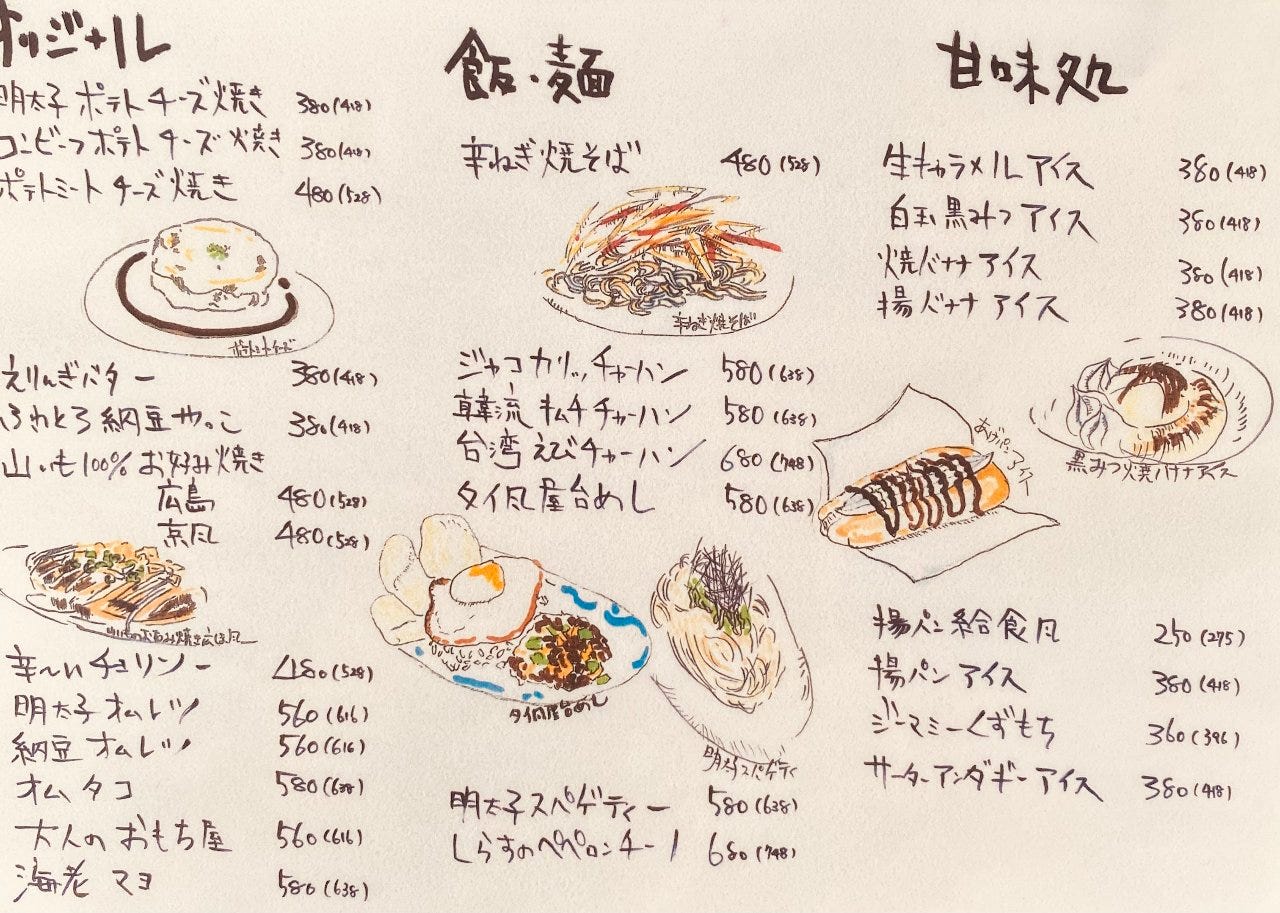 オリジナル
明太子ポテトチーズ焼き 380(418)
コンビーフポテトチーズ焼き 380(418)
ポテトミートチーズ焼き 480(528)
ポテトミートチーズ
えりんぎバター 380(418)
ふわとろ納豆やっこ 380(418)
山いも100%お好み焼き
広島 480(528)
京風 480(528)
お好み焼き広島風
辛〜いチョリソー 480(528)
明太子オムレツ 560(616)
納豆オムレツ 560(616)
オムタコ 580(638)
大人のおもち屋 560(616)
海老マヨ 580(638)
飯・麺
辛ねぎ焼そば 480(528)
辛ねぎ焼そば
ジャコカリッチャーハン 580(638)
韓流キムチチャーハン 580(638)
台湾えびチャーハン 680(748)
タイ風屋台めし 580(638)
タイ風屋台めし
明太子スパゲティ
明太子スパゲティー 580(638)
しらすのペペロンチーノ 680(748)
甘味処
生キャラメルアイス 380(418)
白玉黒みつアイス 380(418)
焼バナナアイス 380(418)
揚バナナアイス 380(418)
あげパンアイス
黒みつ焼バナナアイス
揚パン給食風 250(275)
揚パンアイス 380(418)
ジーマミーくずもち 360(396)
サーターアンダギーアイス 380(418)